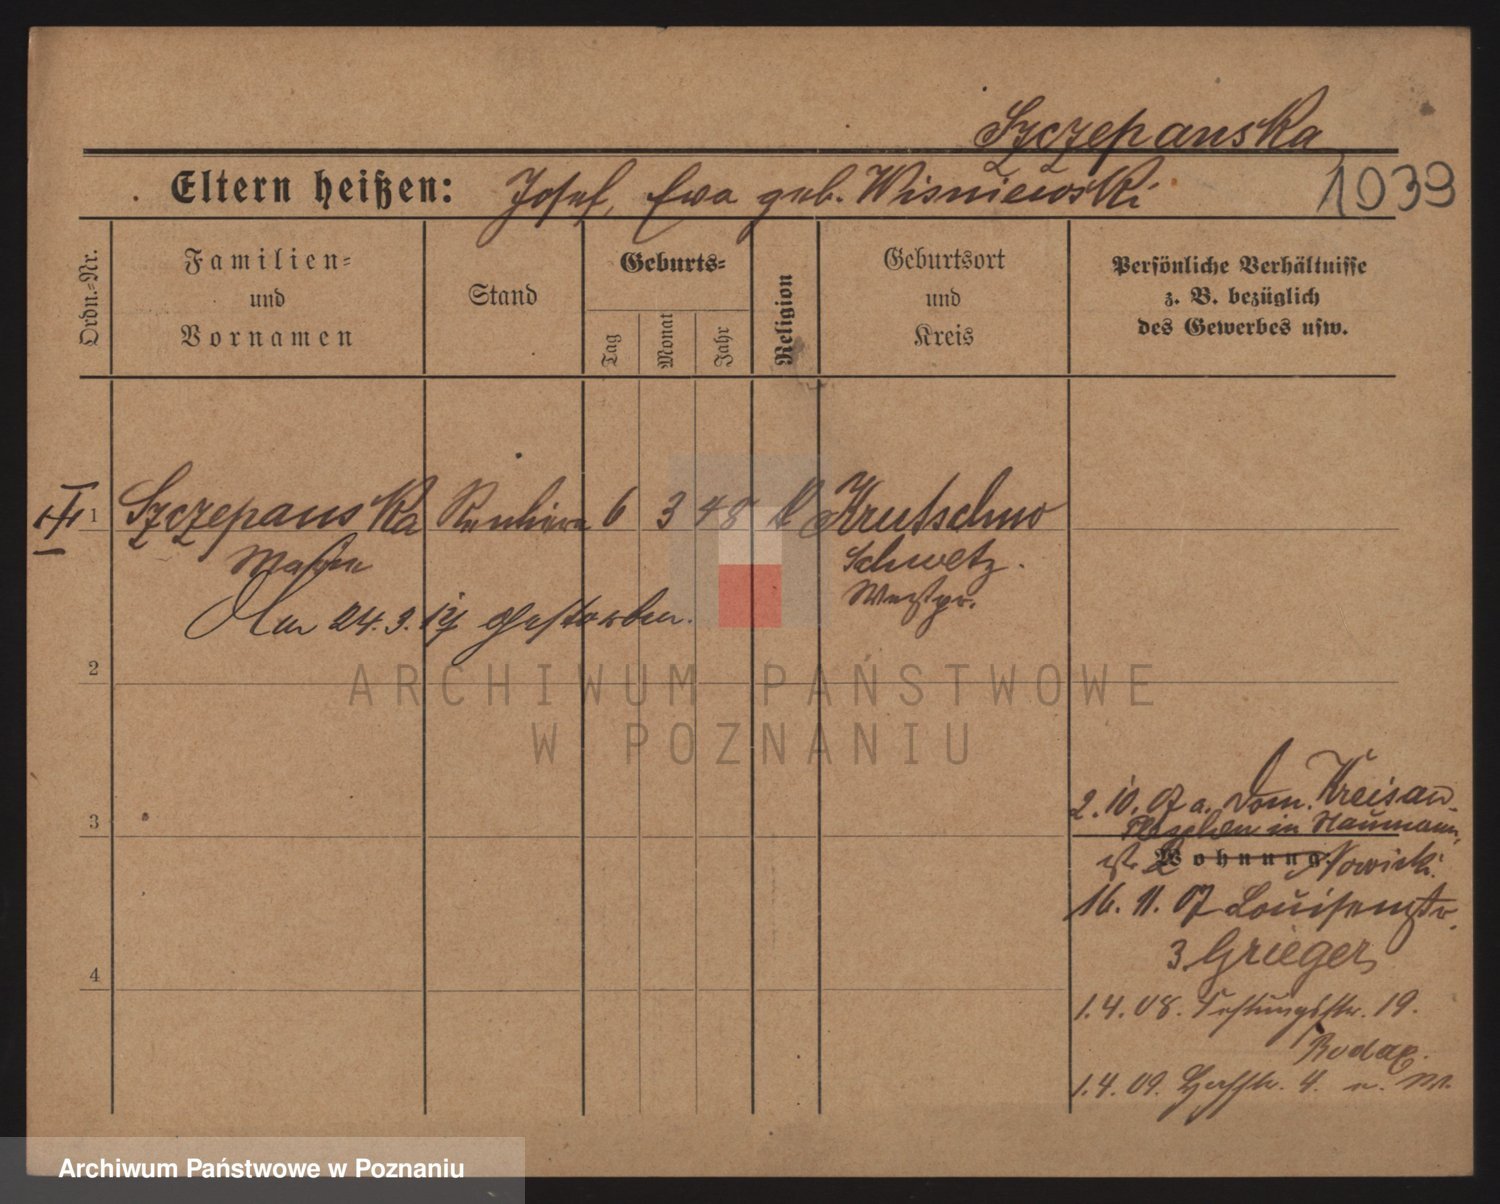 Szczepanska
Eltern heißen: Josef, Eva geb. Wisniewski 1039
Ordn.-Nr.
Familien-
und
Vornamen
Stand
Geburts-
Tag
Monat
Jahr
Religion
Geburtsort
und
Kreis
Persönliche Verhältnisse
z. B. bezüglich
des Gewerbes usw.
1 Szczepanska 6 3 48 k Krutschno
Schwetz
Westpr.
Am 24. 9. 17 gestorben.
2
2. 10. 07 a. Dom. Kreisan-
Pleschen in Naumann-
3
Wohnung: Nowicki.
16. 11. 07 Louisenstr.
3 Grieger
4
1. 4. 08. Festungsstr. 19.
1. 4. 09. 4. u. M.
ARCHIWUM PAŃSTWOWE
W POZNANIU
Archiwum Państwowe w Poznaniu